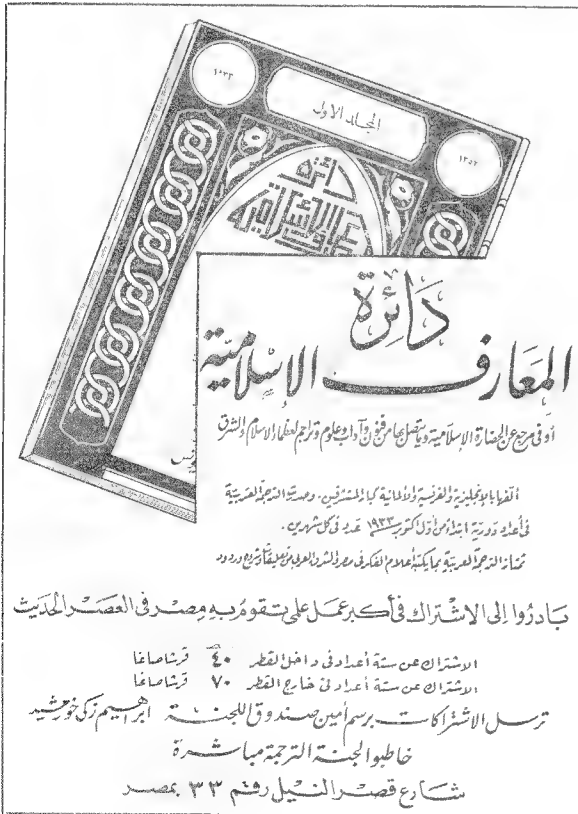 ١٩٣٣
المجلد الأول
١٣٥٢
دائرة
المعارف الإسلامية
دَائِرَة
المَعَارف الإسْلَاميَّة
أوفى مرجع عن الحضارة الإسلامية وما يتصل بها من فنون وآداب وعلوم وتراجم لعظماء الإسلام والشرق
ألفها بالإنجليزية والفرنسية والألمانية كبار المستشرقين. وصدرت الترجمة العربية
فى أعداد دورية ابتداء من أول أكتوبر ١٩٣٣ عدد فى كل شهرين.
تمتاز الترجمة العربية بما يكتبه أعلام الفكر فى مصر والشرق العربى من تعليقات وشروح وردود
بَادرُوا إلى الاشْتراك فى أكبر عمَل علمى تقومُ بهِ مصْر فى العصْر الحَديث
الاشتراك عن ستة أعداد فى داخل القطر ٤٠ قرشا صاغا
الاشتراك عن ستة أعداد فى خارج القطر ٧٠ قرشا صاغا
ترسل الاشتراكات برسم أمين صندوق اللجنة ابراهيم زكى خورشيد
خاطبوا لجنة الترجمة مباشرة
شارع قصر النيل رقم ٣٣ بمصر